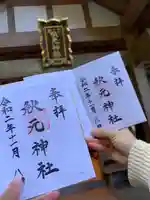 奉拝
秋元神社
令和二年十一月八
奉拝
秋元神社
令和二年十一月八